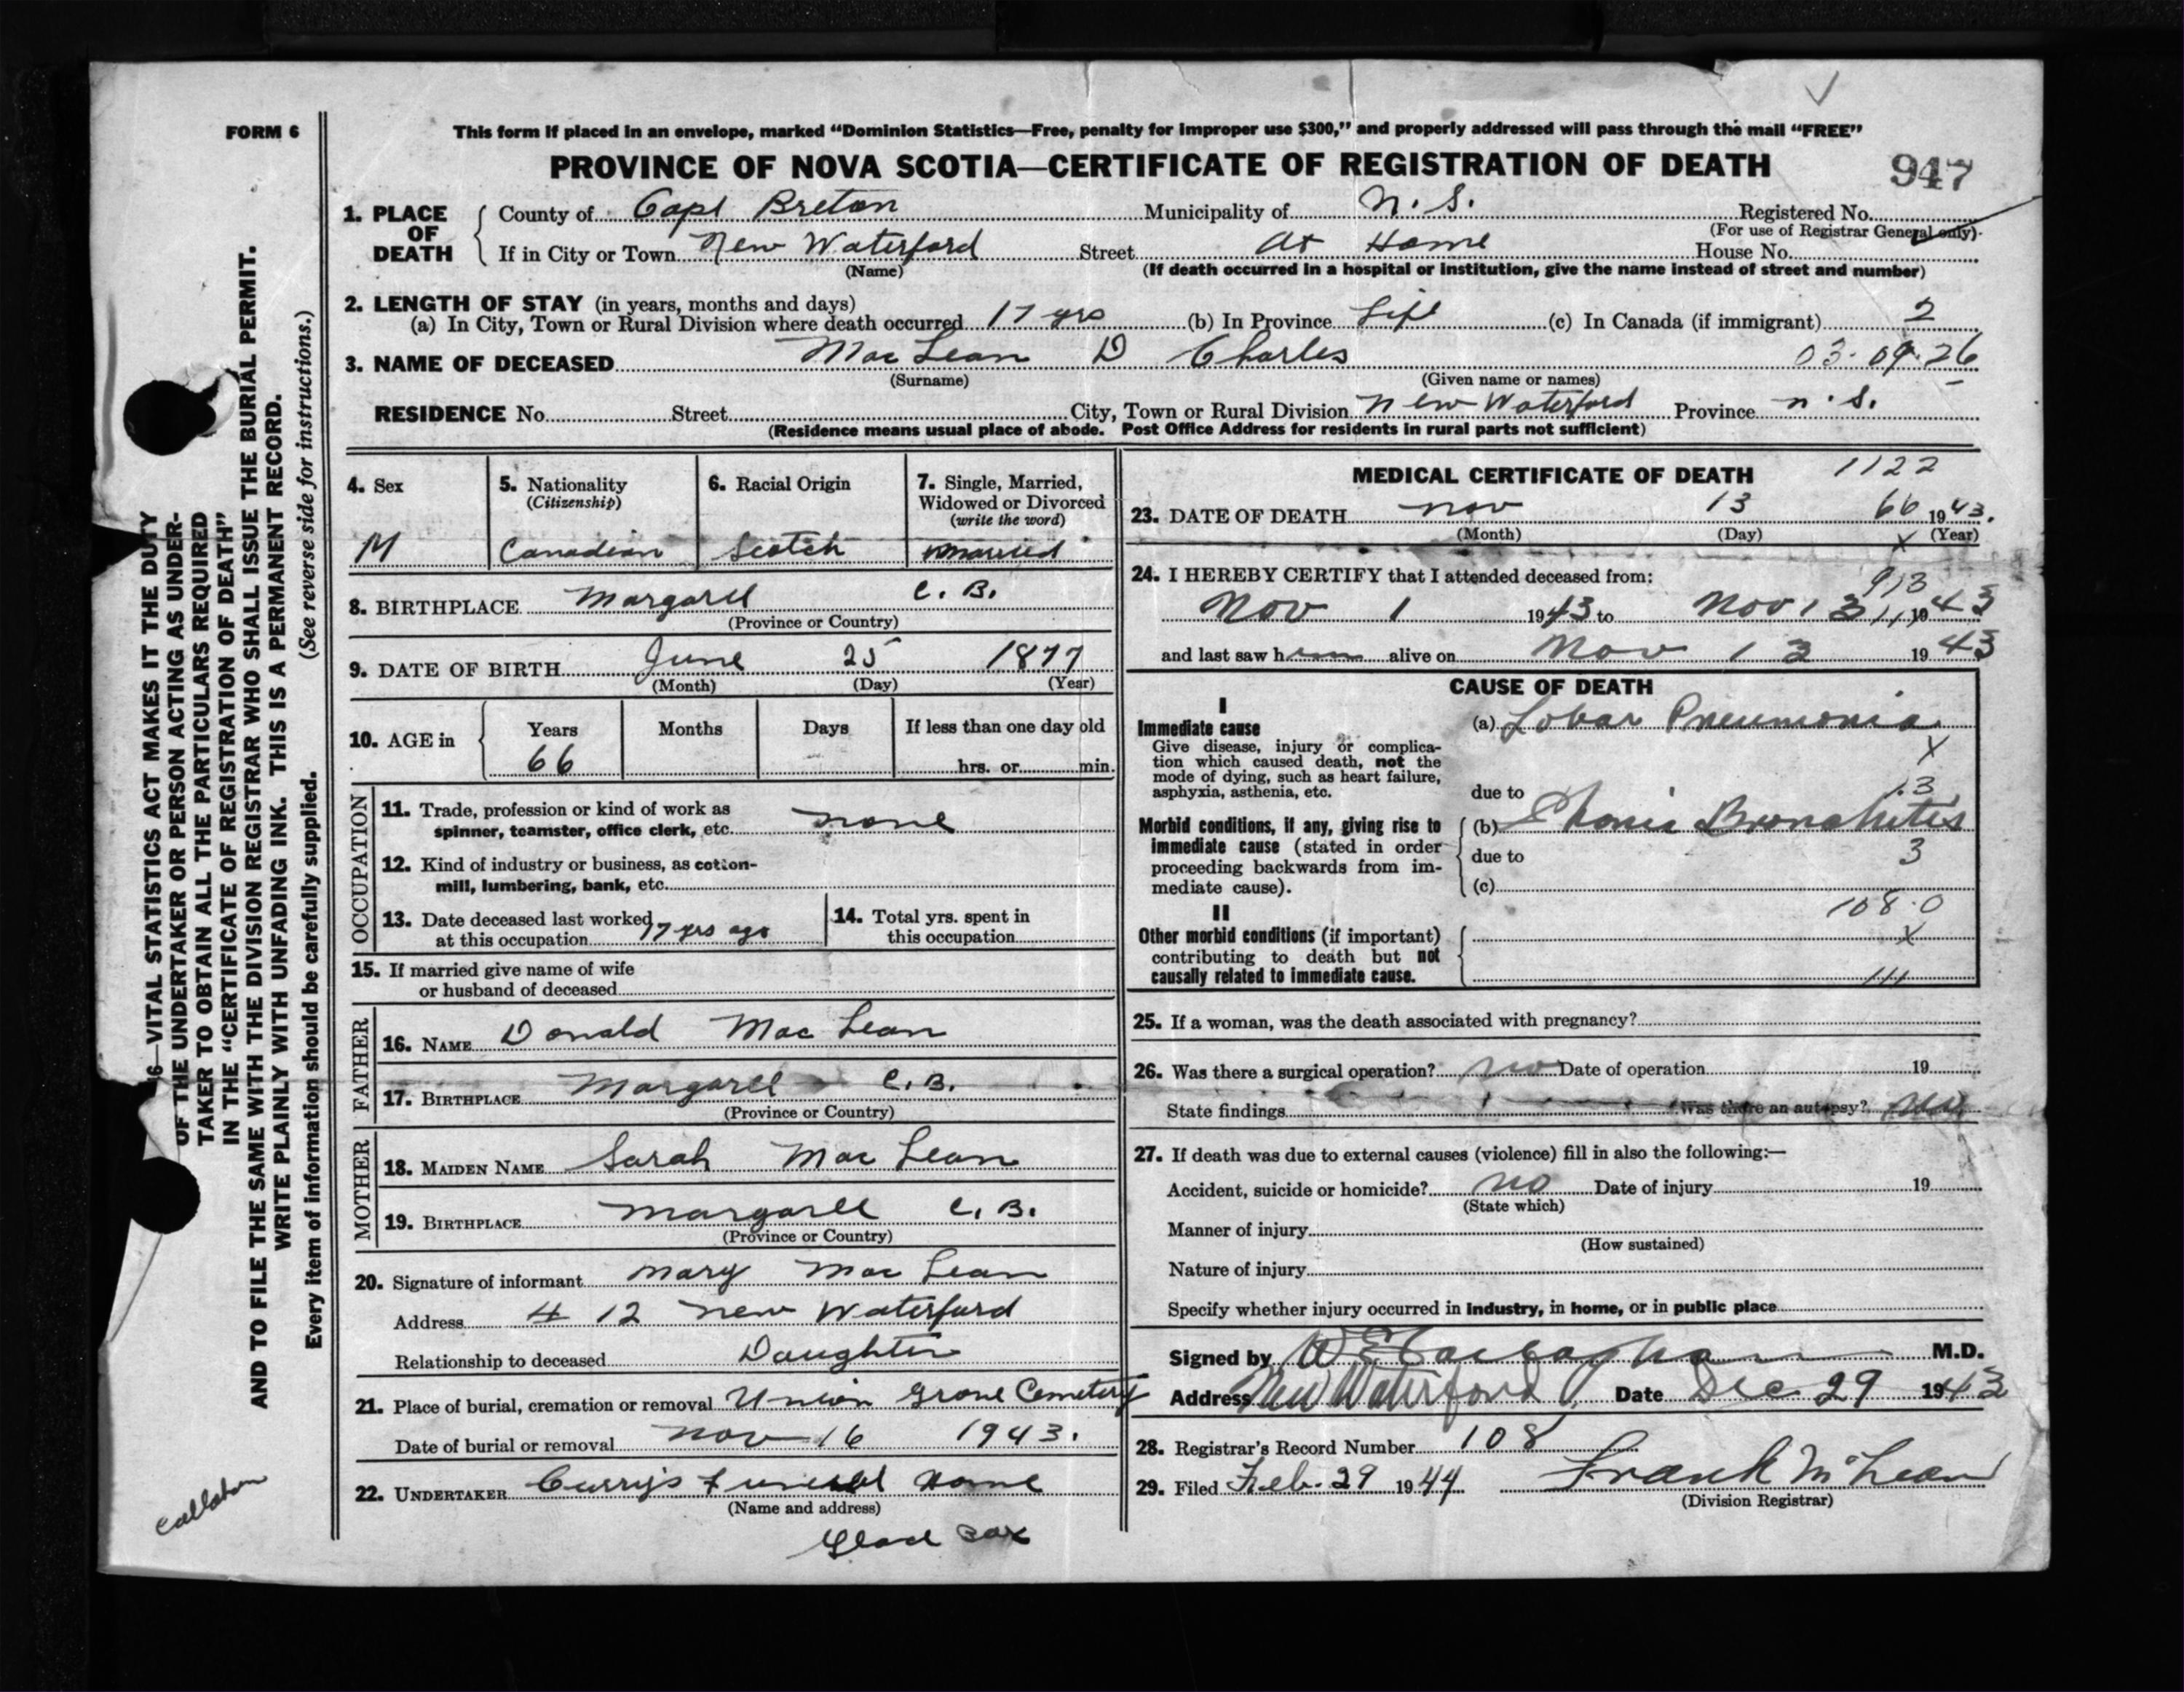 FORM 6
This form if placed in an envelope, marked "Dominion Statistics—Free, penalty for improper use $300," and properly addressed will pass through the mail "FREE"
PROVINCE OF NOVA SCOTIA—CERTIFICATE OF REGISTRATION OF DEATH
947
1. PLACE OF DEATH
County of Cape Breton Municipality of N. S. Registered No.
(For use of Registrar General only)
If in City or Town New Waterford Street At Home House No.
(Name)
(If death occurred in a hospital or institution, give the name instead of street and number)
2. LENGTH OF STAY (in years, months and days)
(a) In City, Town or Rural Division where death occurred 17 yrs (b) In Province Life (c) In Canada (if immigrant) 2
3. NAME OF DECEASED Mac Lean D Charles 03.09.26
(Surname) (Given name or names)
RESIDENCE No. Street City, Town or Rural Division New Waterford Province N. S.
(Residence means usual place of abode. Post Office Address for residents in rural parts not sufficient)
4. Sex
M
5. Nationality
(Citizenship)
Canadian
6. Racial Origin
Scotch
7. Single, Married,
Widowed or Divorced
(write the word)
Married
8. BIRTHPLACE Margaree C. B.
(Province or Country)
9. DATE OF BIRTH June 25 1877
(Month) (Day) (Year)
10. AGE in
Years Months Days If less than one day old
66 hrs. or min.
OCCUPATION
11. Trade, profession or kind of work as
spinner, teamster, office clerk, etc. none
12. Kind of industry or business, as cotton-
mill, lumbering, bank, etc.
13. Date deceased last worked
at this occupation 17 yrs ago
14. Total yrs. spent in
this occupation
15. If married give name of wife
or husband of deceased
FATHER
16. NAME Donald Mac Lean
17. BIRTHPLACE Margaree C. B.
(Province or Country)
MOTHER
18. MAIDEN NAME Sarah Mac Lean
19. BIRTHPLACE Margaree C. B.
(Province or Country)
20. Signature of informant Mary Mac Lean
Address # 12 New Waterford
Relationship to deceased Daughter
21. Place of burial, cremation or removal Union Grove Cemetery
Date of burial or removal Nov 16 1943.
22. UNDERTAKER Curry's Funeral Home
(Name and address)
Glace Bay
MEDICAL CERTIFICATE OF DEATH
1122
23. DATE OF DEATH Nov 13 66 1943.
(Month) (Day) X (Year)
24. I HEREBY CERTIFY that I attended deceased from:
913
Nov 1 1943 to Nov 13 1943
and last saw him alive on Nov 13 1943
CAUSE OF DEATH
I
Immediate cause
Give disease, injury or complica-
tion which caused death, not the
mode of dying, such as heart failure,
asphyxia, asthenia, etc.
(a) Lobar Pneumonia
X
due to 13
Morbid conditions, if any, giving rise to
immediate cause (stated in order
proceeding backwards from im-
mediate cause).
(b) Chonic Bronchitis
due to 3
(c)
108.0
II
Other morbid conditions (if important)
contributing to death but not
causally related to immediate cause.
X
111
25. If a woman, was the death associated with pregnancy?
26. Was there a surgical operation? No Date of operation 19
State findings Was there an autopsy? No
27. If death was due to external causes (violence) fill in also the following:—
Accident, suicide or homicide? No Date of injury 19
(State which)
Manner of injury
(How sustained)
Nature of injury
Specify whether injury occurred in industry, in home, or in public place
Signed by M.D.
Address New Waterford Date Dec 29 1943
28. Registrar's Record Number 108
29. Filed Feb. 29 1944 Frank McLean
(Division Registrar)
6—VITAL STATISTICS ACT MAKES IT THE DUTY
OF THE UNDERTAKER OR PERSON ACTING AS UNDER-
TAKER TO OBTAIN ALL THE PARTICULARS REQUIRED
IN THE "CERTIFICATE OF REGISTRATION OF DEATH"
AND TO FILE THE SAME WITH THE DIVISION REGISTRAR WHO SHALL ISSUE THE BURIAL PERMIT.
WRITE PLAINLY WITH UNFADING INK. THIS IS A PERMANENT RECORD.
Every item of information should be carefully supplied. (See reverse side for instructions.)
Callahan